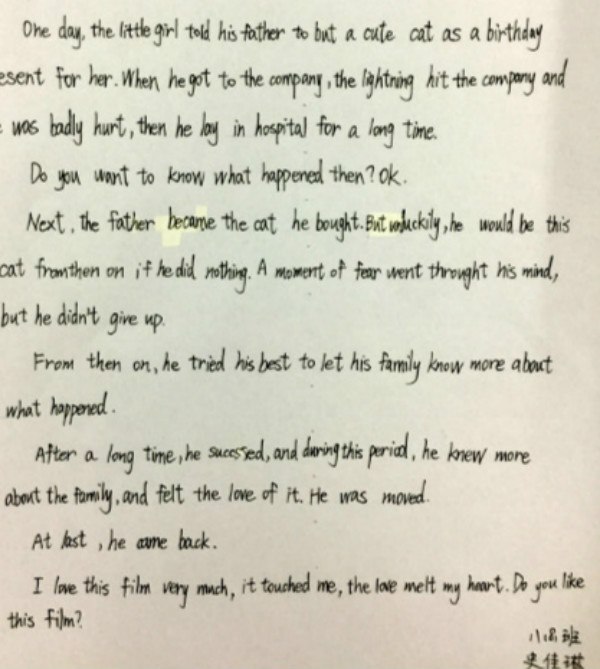 One day, the little girl told his father to but a cute cat as a birthday
esent for her. When he got to the company, the lightning hit the company and
was badly hurt, then he lay in hospital for a long time.
Do you want to know what happened then? Ok.
Next, the father became the cat he bought. But unluckily, he would be this
cat from then on if he did nothing. A moment of fear went throught his mind,
but he didn't give up.
From then on, he tried his best to let his family know more about
what happened.
After a long time, he sucessed, and during this period, he knew more
about the family, and felt the love of it. He was moved.
At last, he came back.
I love this film very much, it touched me, the love melt my heart. Do you like
this film?
八(8)班
史佳琪